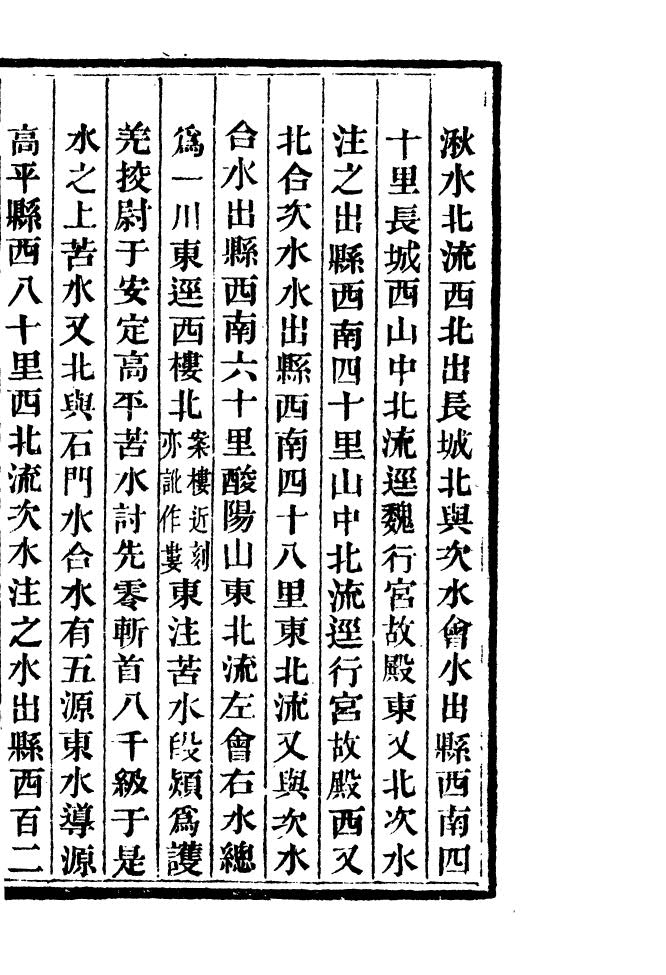 湫水北流西北出長城北與次水會水出縣西南四
十里長城西山中北流逕魏行宮故殿東又北次水
注之出縣西南四十里山中北流逕行宮故殿西又
北合次水水出縣西南四十八里東北流又與次水
合水出縣西南六十里酸陽山東北流左會右水總
爲一川東逕西樓北案樓近刻亦訛作蔞東注苦水段熲爲護
羌挍尉于安定高平苦水討先零斬首八千級于是
水之上苦水又北與石門水合水有五源東水導源
高平縣西八十里西北流次水注之水出縣西百二